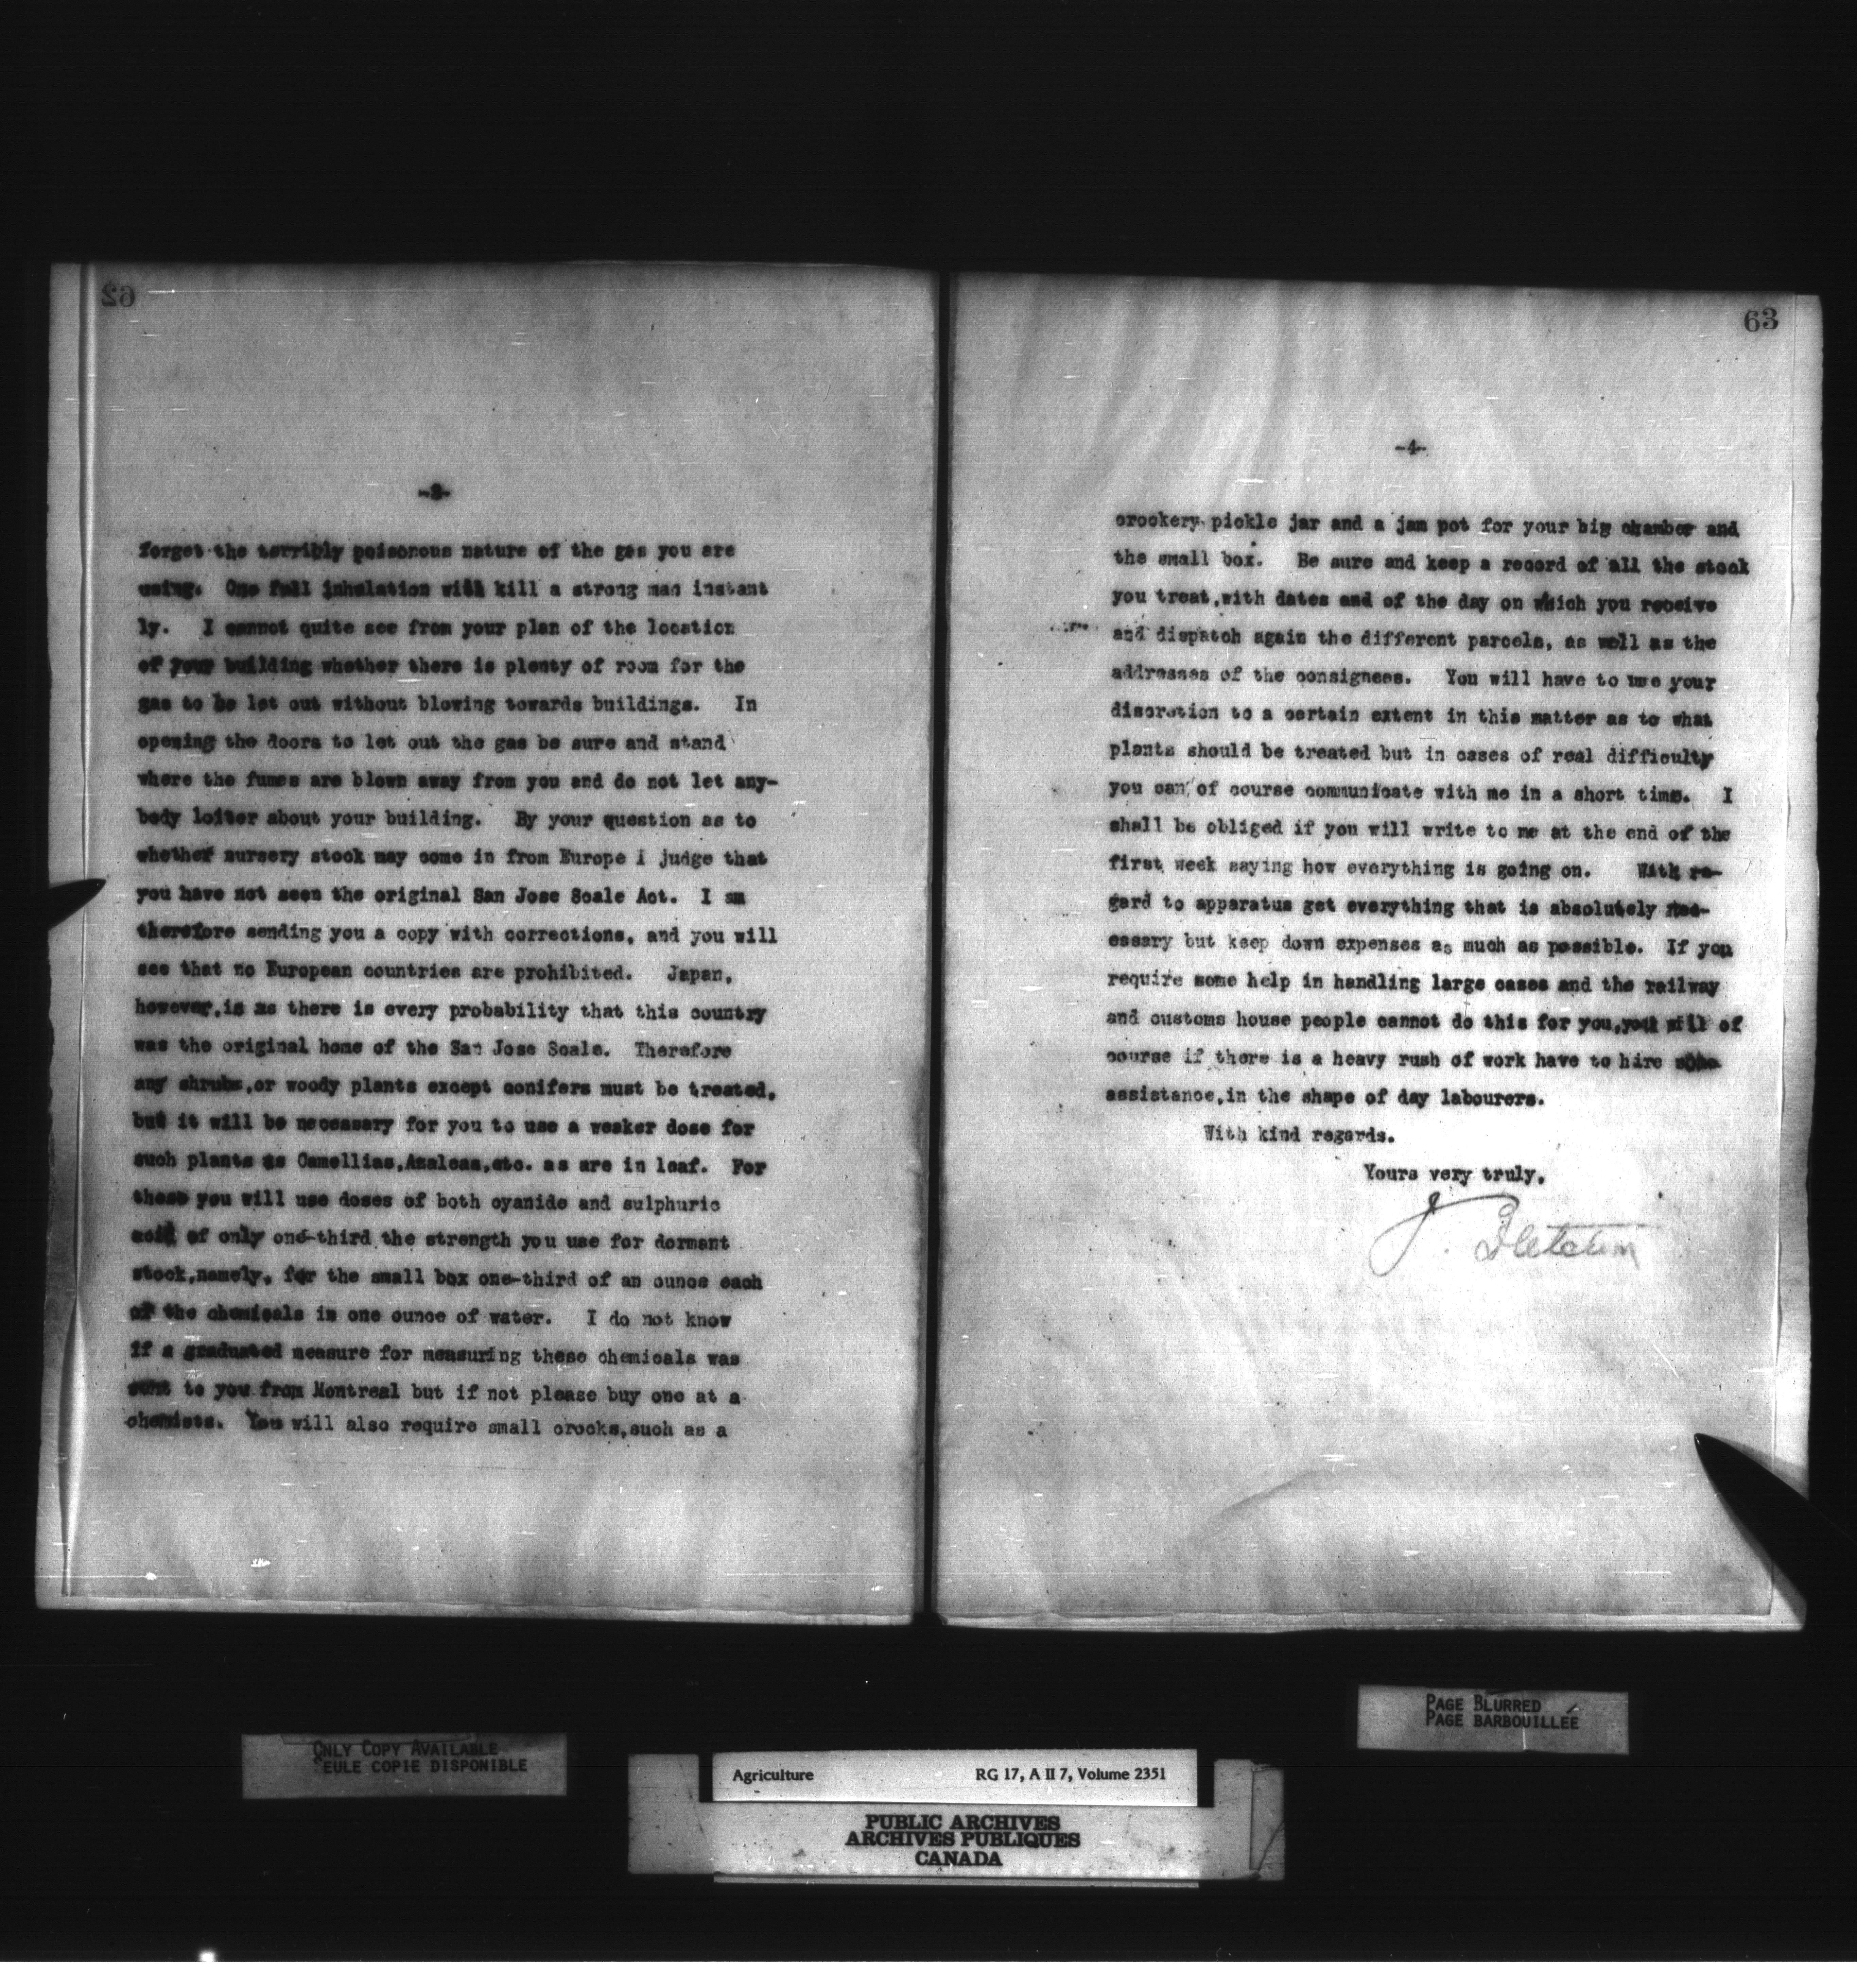 62
-3-
forget the terribly poisonous nature of the gas you are
using. One full inhalation will kill a strong man instant
ly. I cannot quite see from your plan of the location
of your building whether there is plenty of room for the
gas to be let out without blowing towards buildings. In
opening the doors to let out the gas be sure and stand
where the fumes are blown away from you and do not let any-
body loiter about your building. By your question as to
whether nursery stock may come in from Europe I judge that
you have not seen the original San Jose Scale Act. I am
therefore sending you a copy with corrections, and you will
see that no European countries are prohibited. Japan,
however, is as there is every probability that this country
was the original home of the San Jose Scale. Therefore
any shrubs, or woody plants except conifers must be treated,
but it will be necessary for you to use a weaker dose for
such plants as Camellias, Azaleas, etc. as are in leaf. For
these you will use doses of both cyanide and sulphuric
acid of only one-third the strength you use for dormant
stock, namely, for the small box one-third of an ounce each
of the chemicals in one ounce of water. I do not know
if a graduated measure for measuring these chemicals was
sent to you from Montreal but if not please buy one at a
chemists. You will also require small crocks, such as a
63
-4-
crockery pickle jar and a jam pot for your big chamber and
the small box. Be sure and keep a record of all the stock
you treat, with dates and of the day on which you receive
and dispatch again the different parcels, as well as the
addresses of the consignees. You will have to use your
discretion to a certain extent in this matter as to what
plants should be treated but in cases of real difficulty
you can of course communicate with me in a short time. I
shall be obliged if you will write to me at the end of the
first week saying how everything is going on. With re-
gard to apparatus get everything that is absolutely nec-
essary but keep down expenses as much as possible. If you
require some help in handling large cases and the railway
and customs house people cannot do this for you, you will of
course if there is a heavy rush of work have to hire some
assistance, in the shape of day labourers.
With kind regards.
Yours very truly,
J. Fletcher
ONLY COPY AVAILABLE
SEULE COPIE DISPONIBLE
PAGE BLURRED
PAGE BARBOUILLÉE
Agriculture RG 17, A II 7, Volume 2351
PUBLIC ARCHIVES
ARCHIVES PUBLIQUES
CANADA